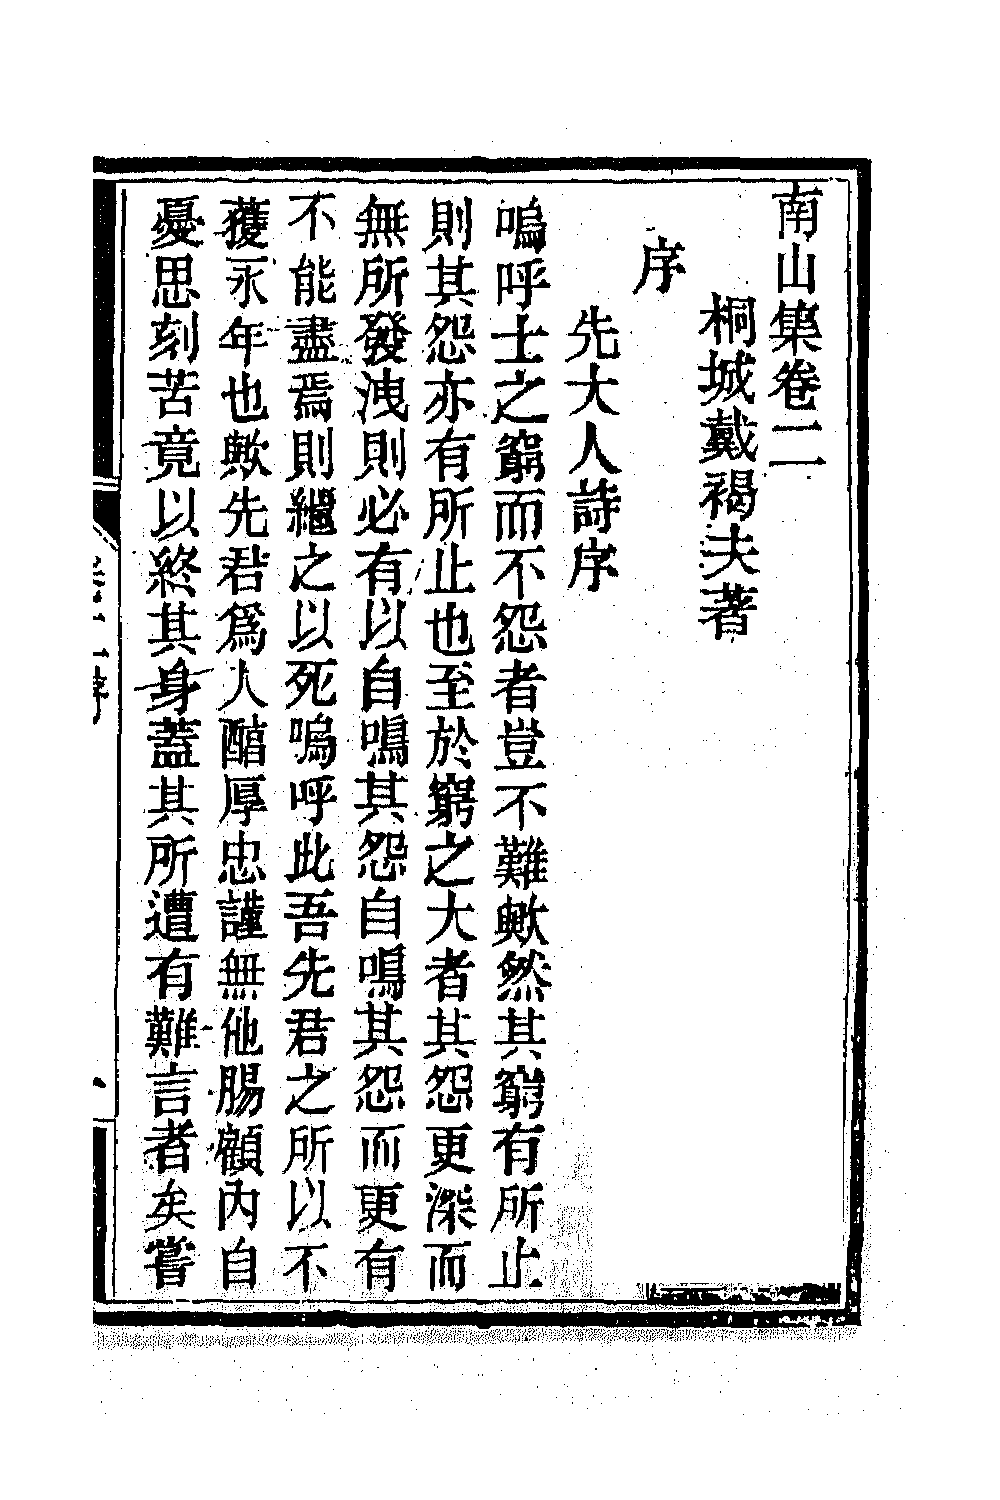 南山集卷二
桐城戴褐夫著
序
先大人詩序
嗚呼士之窮而不怨者豈不難歟然其窮有所止
則其怨亦有所止也至於窮之大者其怨更深而
無所發洩則必有以自鳴其怨自鳴其怨而更有
不能盡焉則繼之以死嗚呼此吾先君之所以不
獲永年也歟先君爲人醕厚忠謹無他腸顧內自
憂思刻苦竟以終其身蓋其所遭有難言者矣嘗